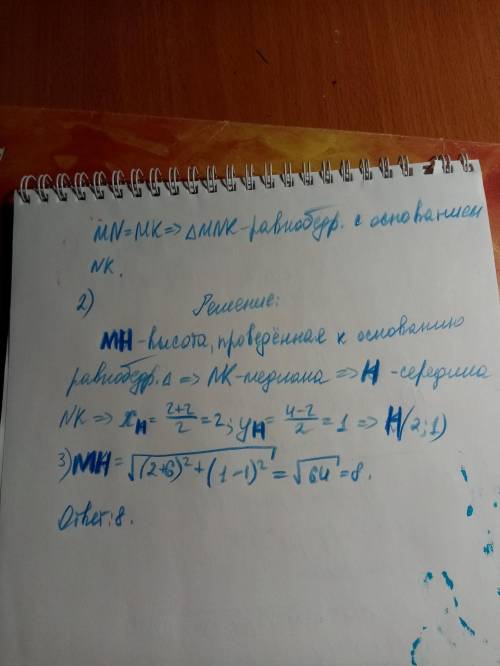 MN=MK=>△MNK-равнобедр. с основанием
NK.
2) Решение:
MH-высота, проведённая к основанию
равнобедр. △ => NK-медиана => H-середина
NK => x_H = \frac{2+2}{2} = 2; y_H = \frac{4-2}{2} = 1 => H(2; 1)
3) MH = \sqrt{(2+6)^2+(1-1)^2} = \sqrt{64} = 8.
Ответ: 8.